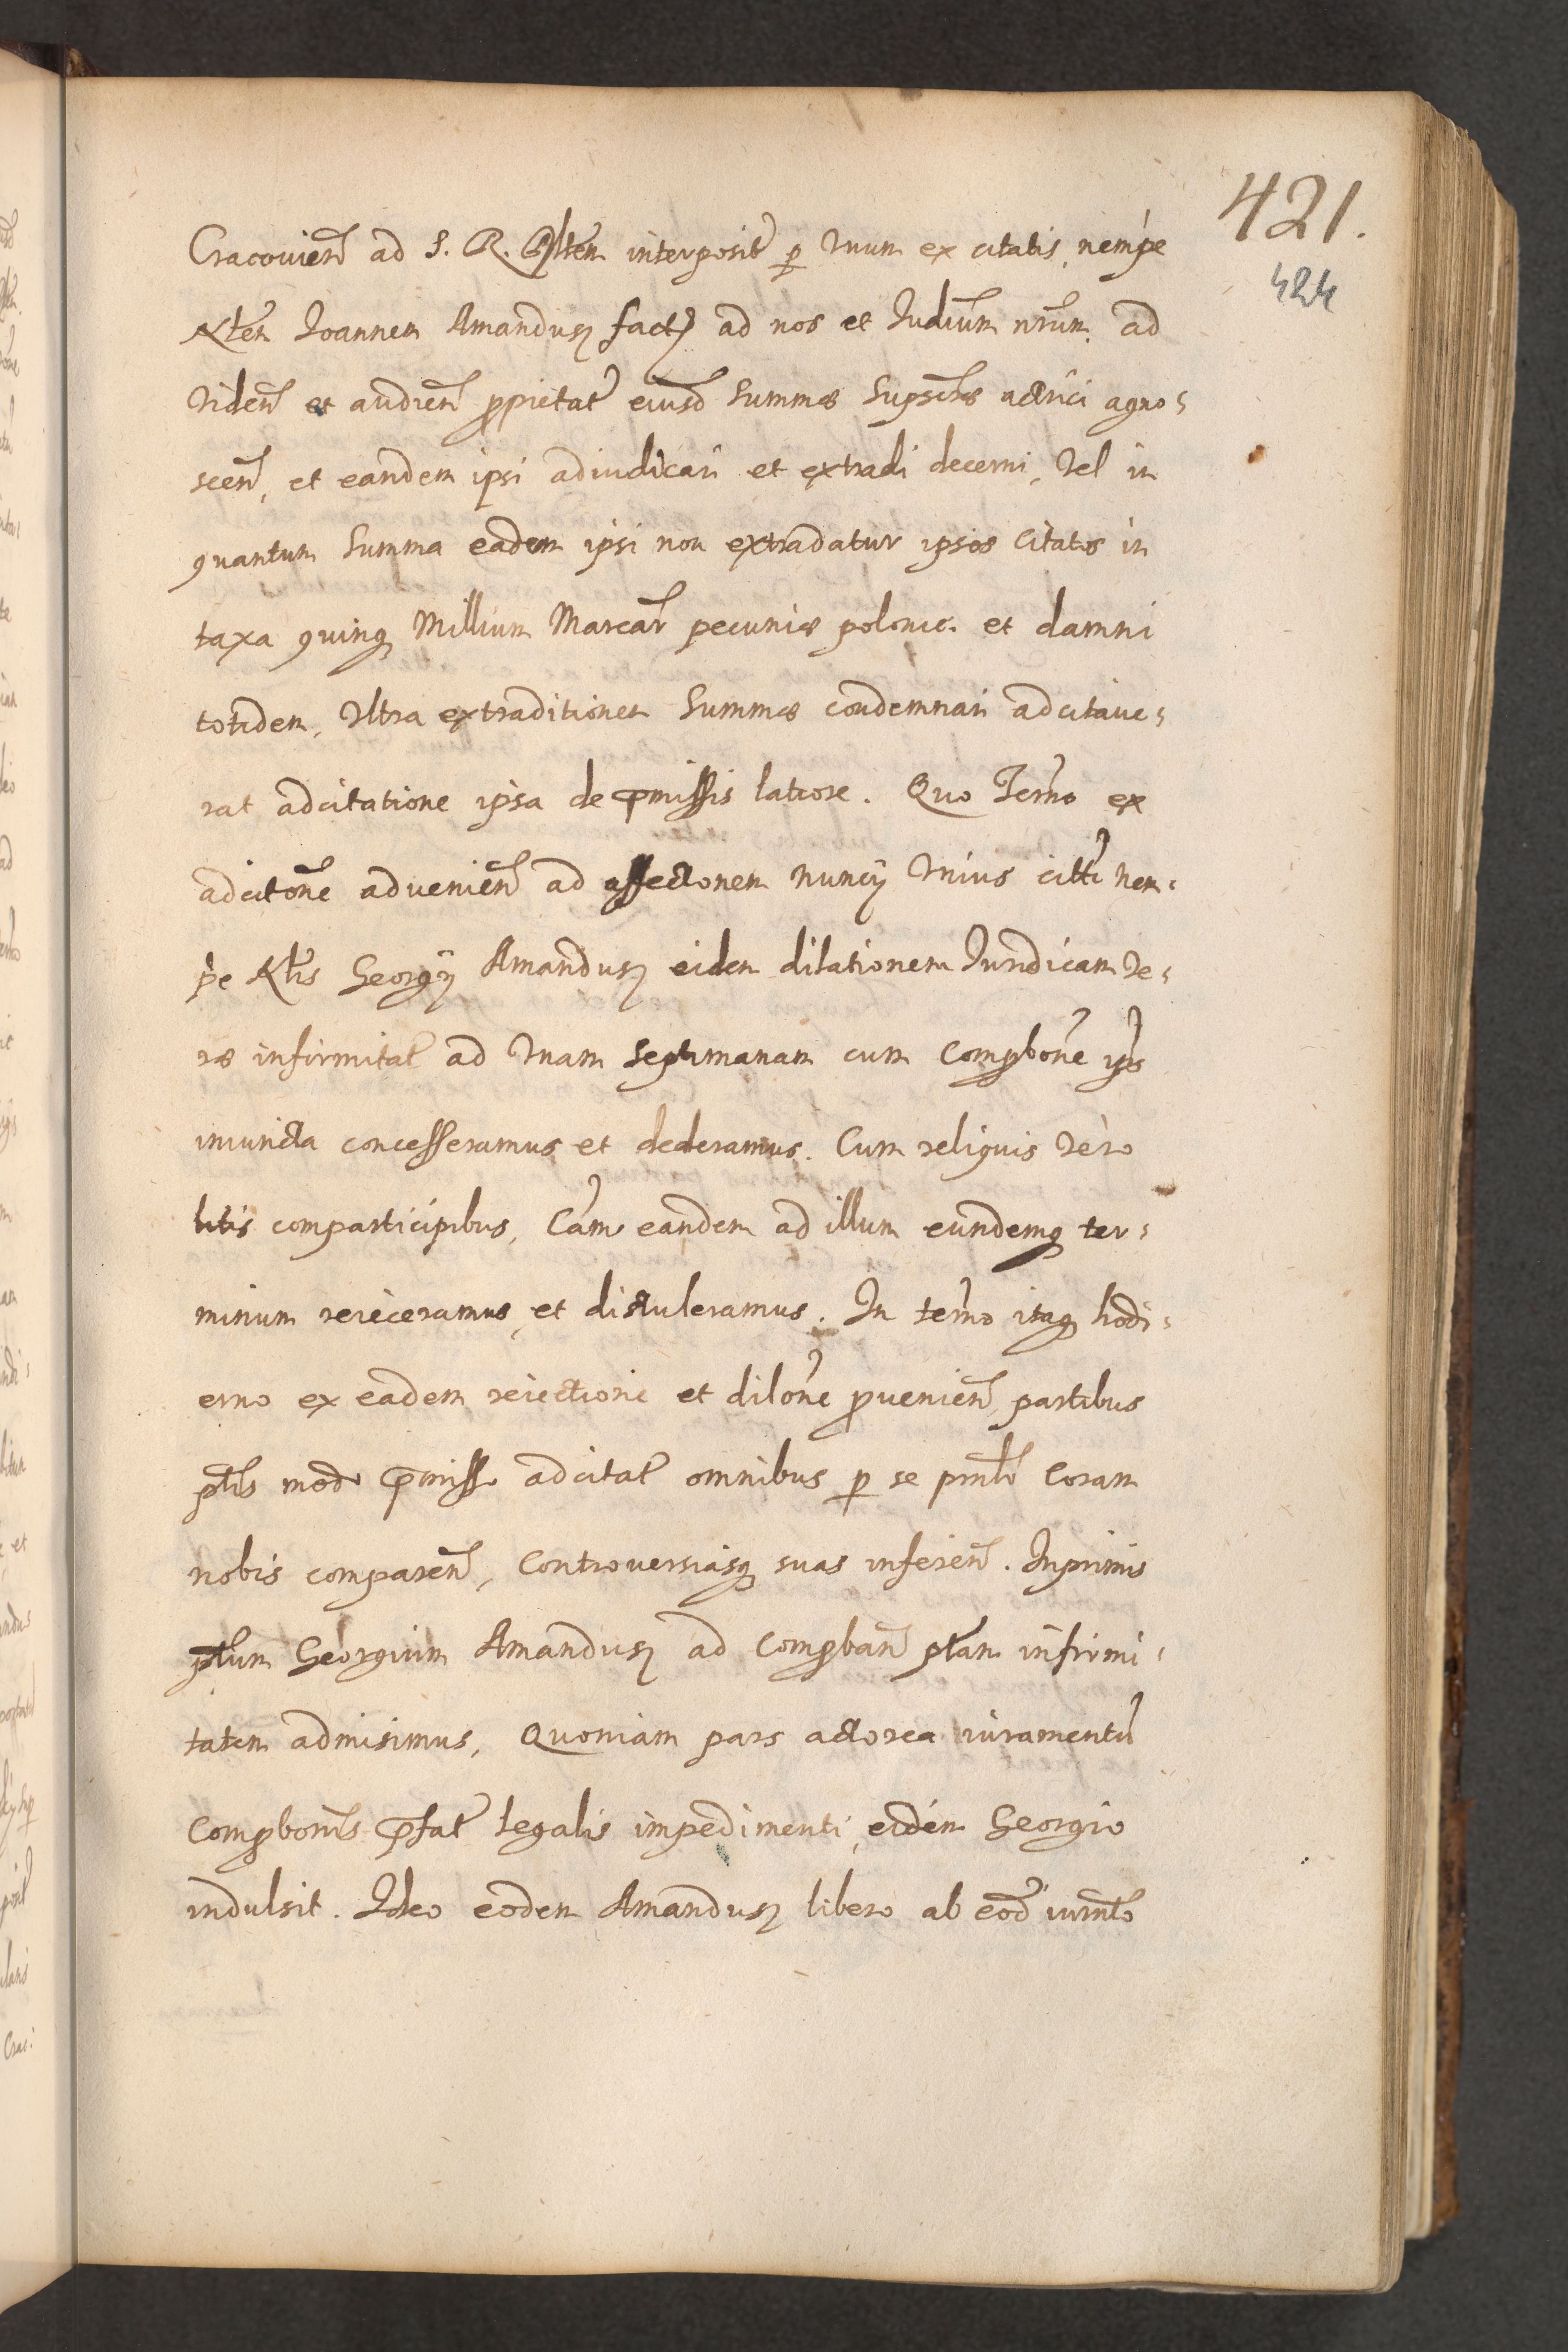 421.
424
Cracovien̄ ad S. R. Mltem interposit̄ p Vnum ex citatis, nempe
Nblem Joannem Amandusz fact ad nos et Judiūm nrūm, ad
Viden̄ et audien̄ ppietat̄ eiusd Summæ Supsctæ actrici agno-
scen̄, et eandem ipsi adiudicari et extradi decerni, Vel in
quantum Summa eadem ipsi non extradatur ipsos Citatos in
taxa quinq Millium Marcar̄ pecuniæ polonic. et damni
totidem, Vltra extraditionem Summæ condemnari adcitave-
rat adcitatione ipsa de pmissis latiore. Quo Termo ex
adcitōne advenien̄ ad affectionem nuncij Vnius citti nem-
pe Nblis Georgij Amandusz eidem dilationem Juridicam Ve-
ræ infirmitat̄ ad Vnam septimanam cum compbone ips
iniuncta concesseramus et dederamus. Cum reliquis Vero
litis comparticipibus, Cam̄ eandem ad illum eundemq ter-
minum reieceramus, et distuleramus. In termo itaq hodi-
erno ex eadem reiectione et dilōne pvenien̄, partibus
ptis modo pmisso adcitat̄ omnibus p se pntr̄ Coram
nobis comparen̄, Controversiasq suas inferen̄. Inprimis
ptum Georgium Amandusz ad Compban̄ ptam infirmi-
tatem admisimus, Quoniam pars actorea iuramentū
Compbonis pfat̄ legalis impedimenti, eidem Georgio
indulsit. Ideo eodem Amandusz libero ab eod iurmto